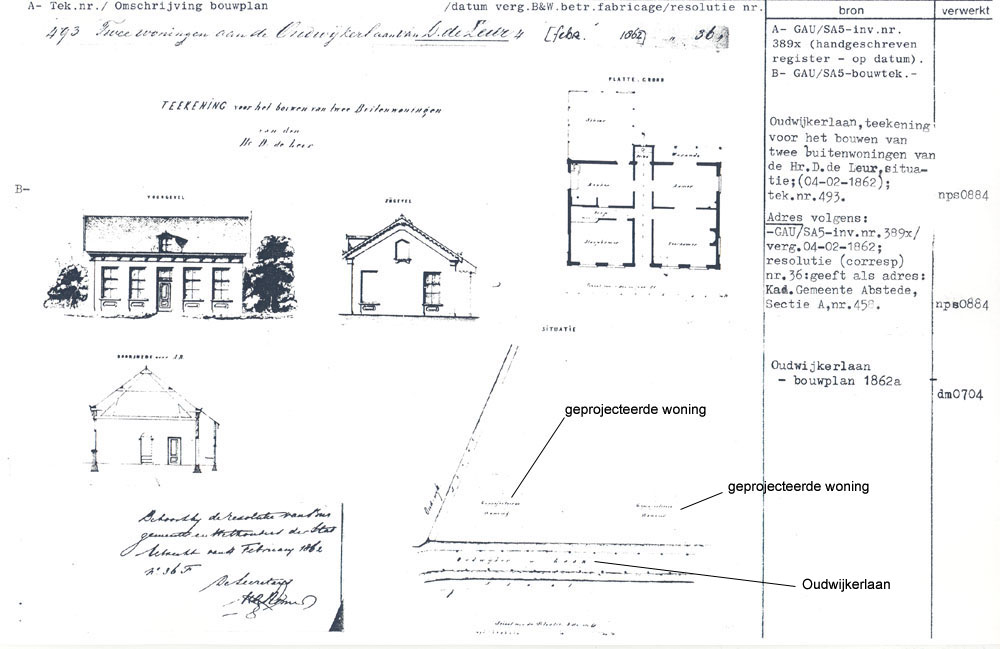 A- Tek.nr./ Omschrijving bouwplan /datum verg.B&W.betr.fabricage/resolutie nr.
bron
verwerkt
493 Twee woningen aan de Oudwijkerlaan van D. de Leur 4 [febr. 1862] " 36.
A- GAU/SA5-inv.nr.
389x (handgeschreven
register - op datum).
B- GAU/SA5-bouwtek.-
TEEKENING voor het bouwen van twee Buitenwoningen
van den
Hr. D. de Leur
PLATTE.GROND
Kamer
Veranda
Keuken
Kamer
Slaapkamer
Voorkamer
Oudwijkerlaan,teekening
voor het bouwen van
twee buitenwoningen van
de Hr.D.de Leur,situa-
tie;(04-02-1862);
tek.nr.493.
nps0884
B-
VOORGEVEL
ZIJGEVEL
Adres volgens:
-GAU/SA5-inv.nr.389x/
verg.04-02-1862;
resolutie (corresp)
nr.36:geeft als adres:
Kad.Gemeente Abstede,
Sectie A,nr.458.
nps0884
SITUATIE
DOORSNEDE over AB
Oudwijkerlaan
- bouwplan 1862a
dm0704
geprojecteerde woning
geprojecteerde woning
Oudwijk
Geprojecteerde
Woning
Geprojecteerde
Woning
Oudwijker - Laan
Oudwijkerlaan
Behoort bij de resolutie van Burg
gemeester en Wethouders der Stad
Utrecht van 4 February 1862
No 36 F
De Secretaris